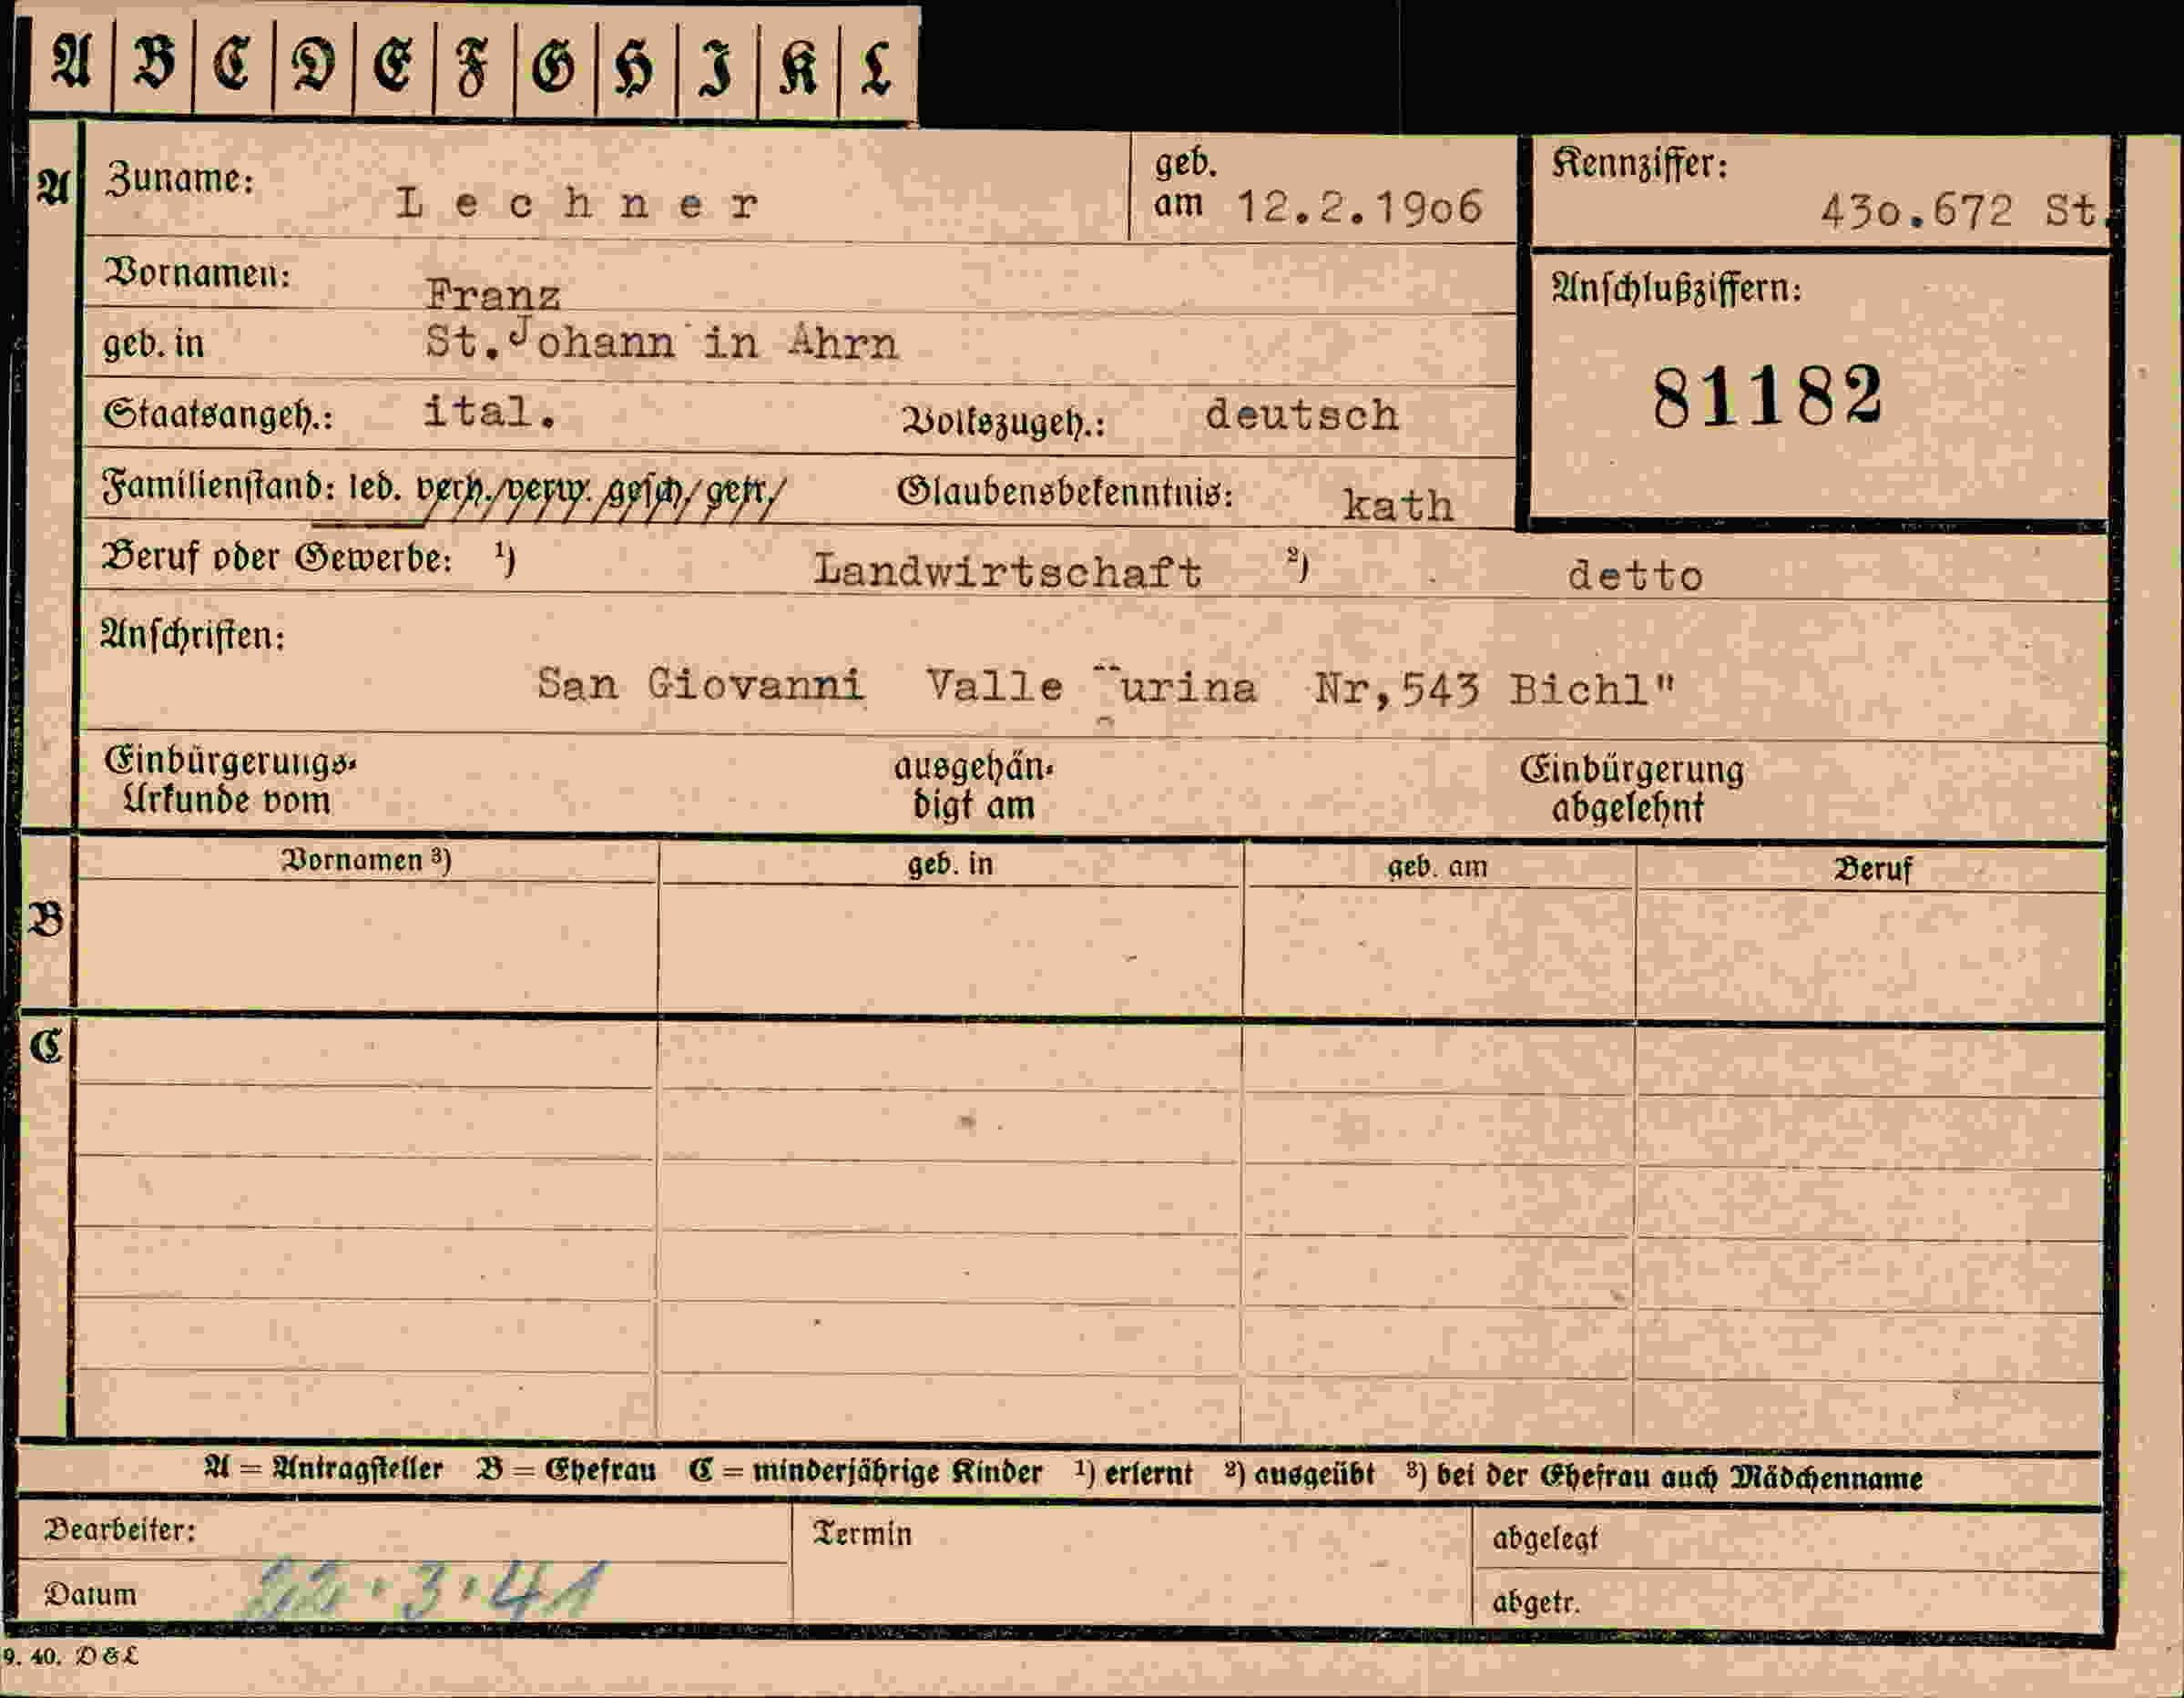 A B C D E F G H I K L
A Zuname: Lechner geb. am 12.2.1906 Kennziffer: 430.672 St.
Vornamen: Franz Anschlußziffern:
geb. in St.Johann in Ahrn
81182
Staatsangeh.: ital. Volkszugeh.: deutsch
Familienstand: led. verh. verw. gesch. getr. Glaubensbekenntnis: kath
Beruf oder Gewerbe: 1) Landwirtschaft 2) detto
Anschriften:
San Giovanni Valle urina Nr,543 Bichl"
Einbürgerungs- ausgehän- Einbürgerung
Urkunde vom digt am abgelehnt
Vornamen 3) geb. in geb. am Beruf
B
C
A = Antragsteller B = Ehefrau C = minderjährige Kinder 1) erlernt 2) ausgeübt 3) bei der Ehefrau auch Mädchenname
Bearbeiter: Termin abgelegt
Datum 22.3.41 abgetr.
9. 40. D & L